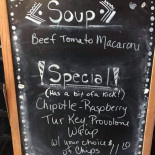 Soup
Beef Tomato Macaroni
Special
(Has a bit of a kick!)
Chipotle-Raspberry
Turkey Provolone
Wrap
w/ your choice
of Chips